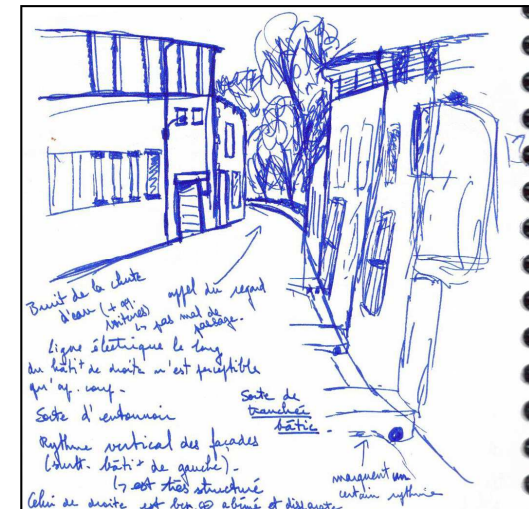 Bruit de la chute
d'eau (+ qq.
voitures)
↳ pas mal de
passage.
appel du regard
Ligne électrique le long
du bâti + de droite n'est perceptible
qu'ap. coup.
Sorte d'entonnoir
Sorte de
tranchée
bâtie.
Rythme vertical des façades
(surtt. bâti + de gauche).
↳ est très structuré
marquent un
certain rythme
Celui de droite est bcp abîmé et disparate